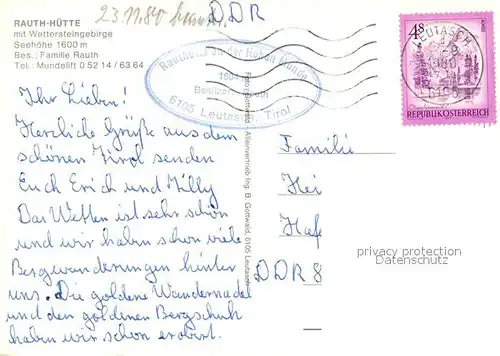 RAUTH-HÜTTE
mit Wettersteingebirge
Seehöhe 1600 m
Bes.: Familie Rauth
Tel.: Mundelift 0 52 14 / 63 64
23.11.80
DDR
Rauthhütte an der Hohen Munde
Besitzer:
6105 Leutasch, Tirol
LEUTASCH
6105
4 S
REPUBLIK ÖSTERREICH
Ihr Lieben!
Herzliche Grüße aus dem
schönen Tirol senden
Euch Erich und Milly
Das Wetter ist sehr schön
und wir haben schon viele
Bergwanderungen hinter
uns. Die goldene Wandernadel
und den goldenen Bergschuh
haben wir schon erobert.
Alleinvertrieb Ing. B. Gottwald, 6105 Leutasch
Familie
Hei
Haf
DDR 8
privacy protection
Datenschutz